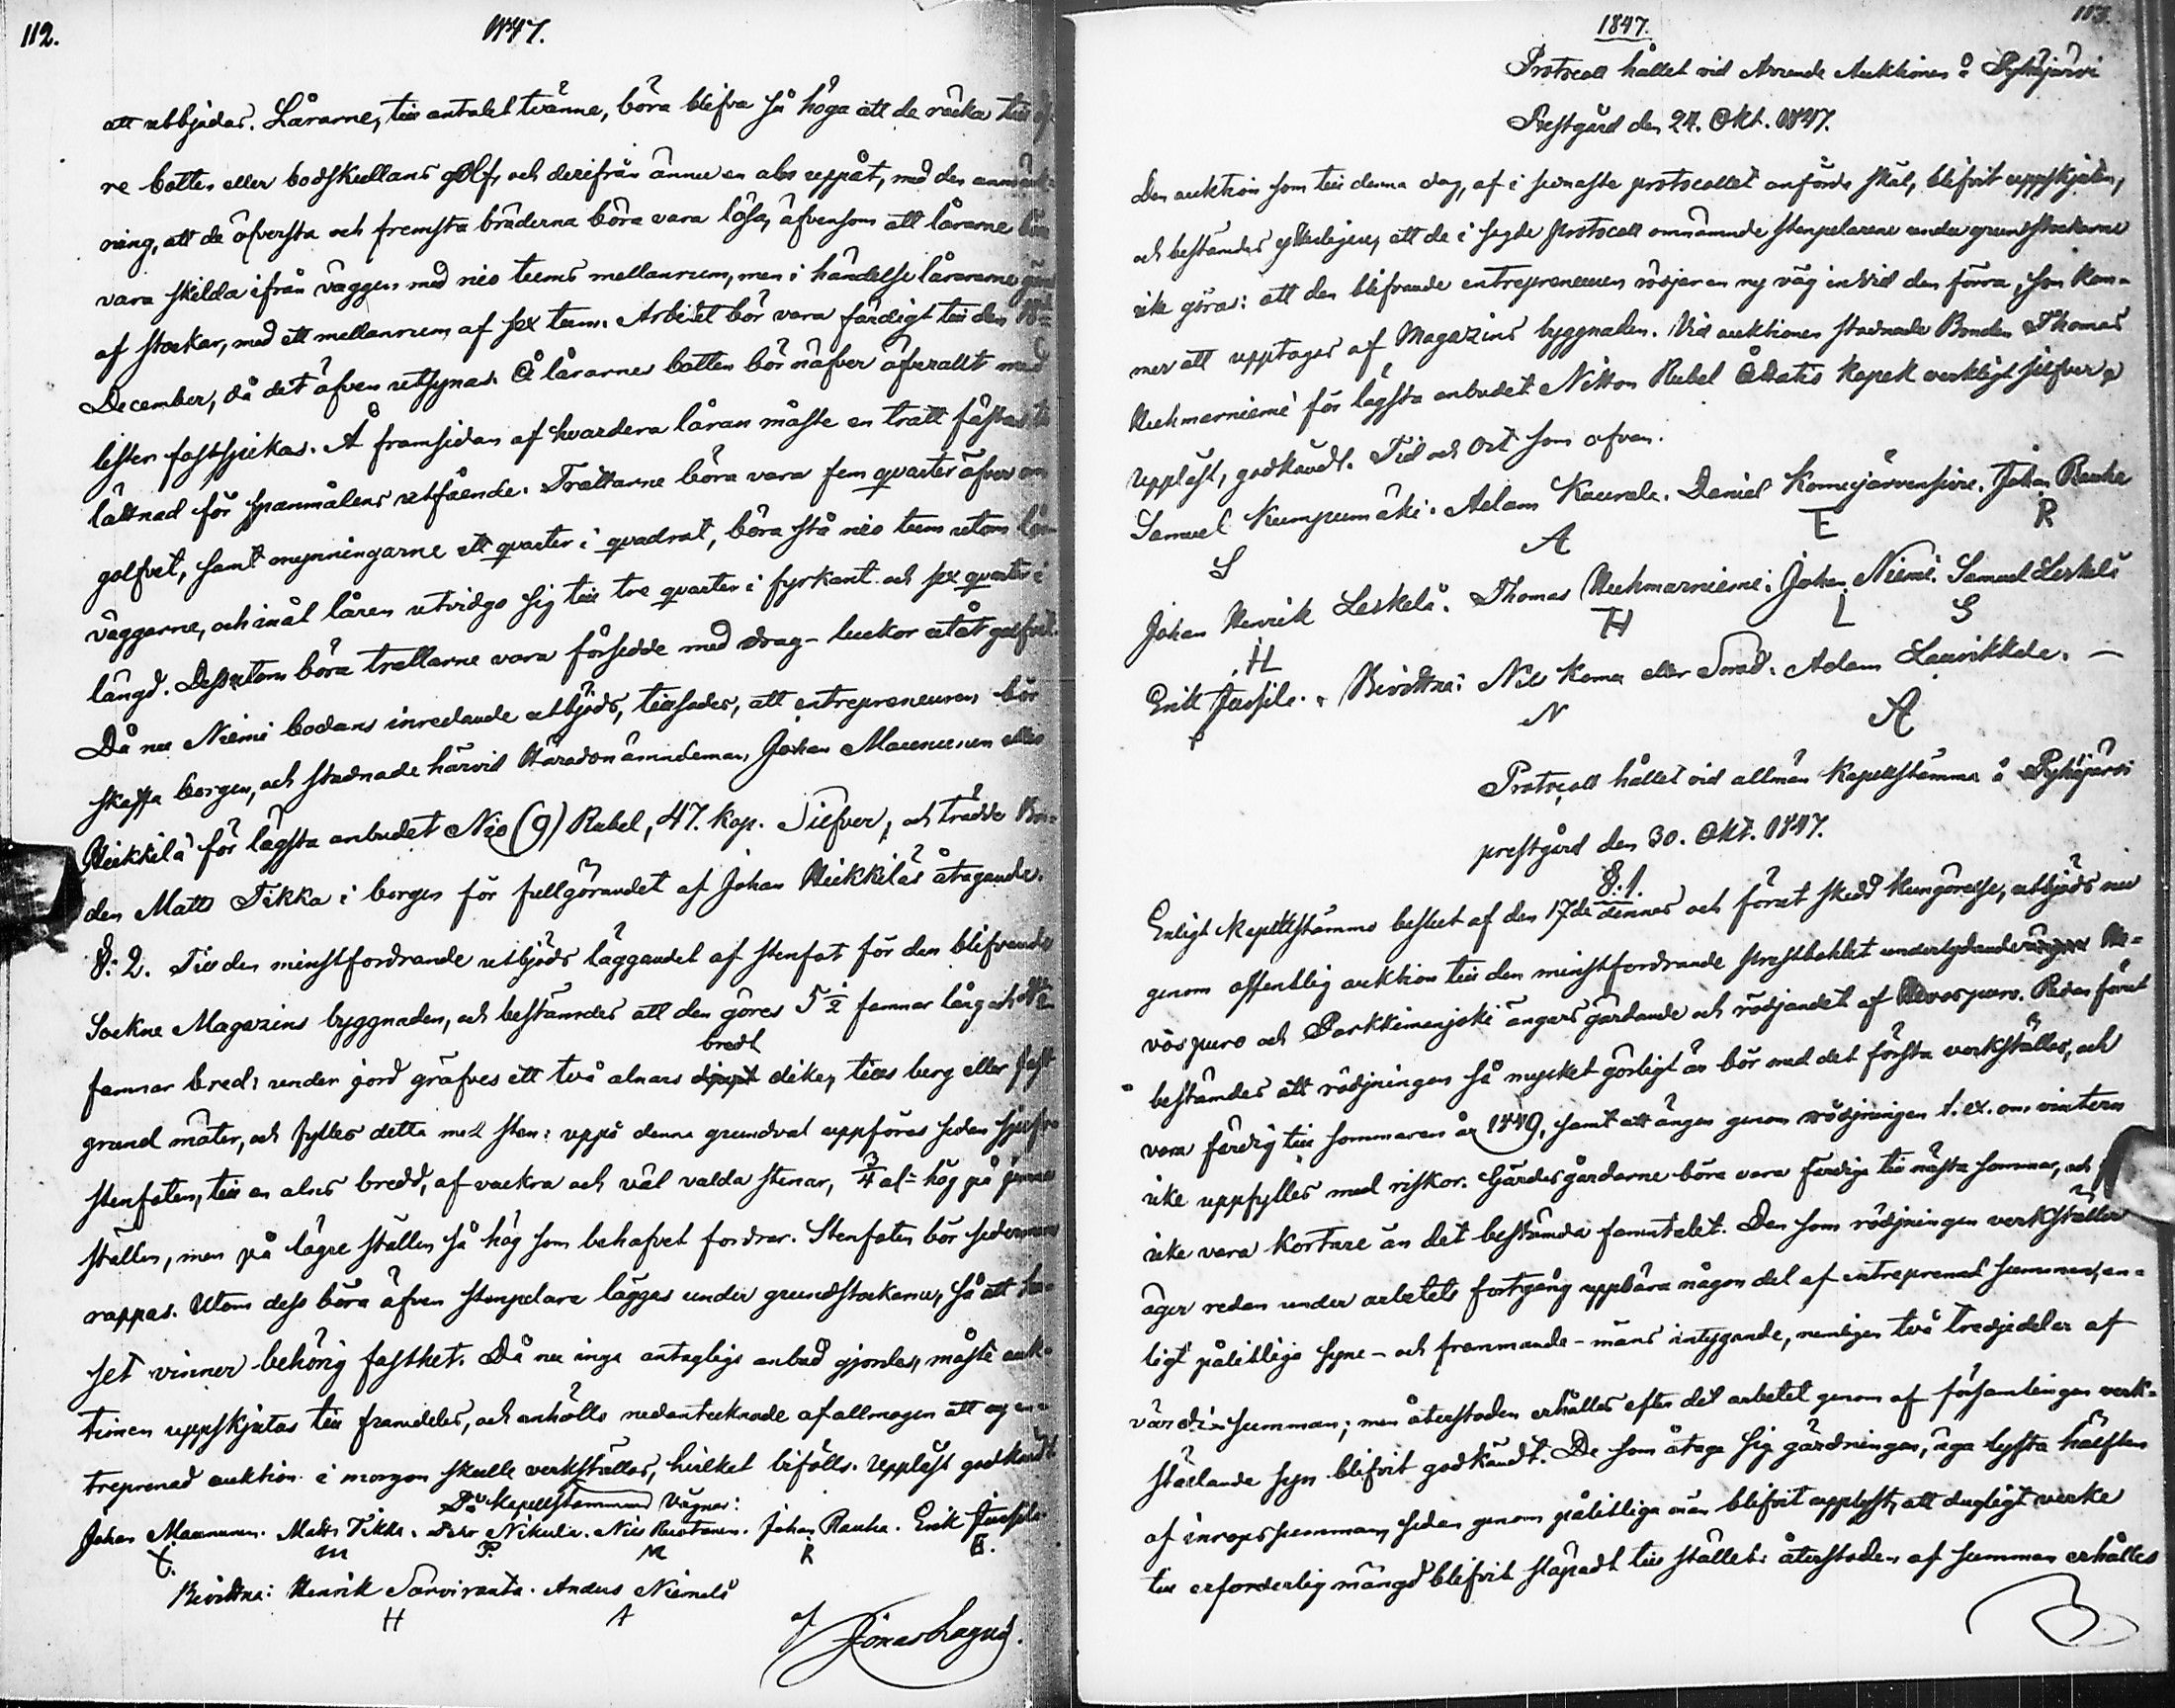 112.
1847.
att utbjudas. Lårarne, till antalet tvänne, böra blifva så höga att de räcka till öf-
re botten eller bodskullans golf, och derifrån ännu en aln uppåt, med den anmärk-
ning, att de öfversta och fremsta bräderna böra vara lösa, äfvensom att lårarne böra
vara skilda ifrån väggen med nio tums mellanrum, men i händelse lårarne göras
af stockar, med ett mellanrum af sex tum. Arbetet bör vara färdigt till den
December, då det äfven utsynas. Å lårarnes botten bör näfver öfverallt med
lister fastspikas. Å framsidan af hvardera låran måste en tratt fästas till
lättnad för spanmålens utfående. Trattarne böra vara fem quarter öfver om
golfvet, samt mynningarne ett quarter i quadrat, böra stå nio tum utom lår-
väggarne, och inåt låren utvidga sig till tre quarter i fyrkant och sex quarter i
längd. Dessutom böra trattarne vara försedde med drag-luckor utåt golfvet.
Då nu Niemi bodans inredande utbjöds, tillsades, att entrepreneuren bör
skaffa borgen, och stadnade härvid Häradsnämndeman Johan Maununen eller
Heikkilä för lägsta anbudet Nio (9) Rubel, 47. kop. Silfver, och trädde Bon-
den Matts Tikka i borgen för fullgörandet af Johan Heikkiläs åtagande.
§: 2. Till den minstfordrande utbjöds läggandet af stenfot för den blifvande
Sockne Magazins byggnaden, och bestämdes att den göres 5½ famnar lång och
bredt
famnar bred: under jord gräfves ett två alnars djupt dike, tills berg eller fast
grund möter, och fylles detta med sten: uppå denna grundval uppföres sedan sjelfva
stenfoten, till en alns bredd, af vackra och väl valda stenar, ¾ al: hög på jemna
ställen, men på lägre ställen så hög som behofvet fordrar. Stenfoten bör sedermera
rappas. Utom dess böra äfven stenpelare läggas under grundstockarne, så att hu-
set vinner behörig fasthet. Då nu inga antagliga anbud gjordes, måste auk-
tionen uppskjutas till framdeles, och anhölls nedantecknade af allmogen att ny en-
treprenad auktion i morgon skulle verkställas, hvilket bifölls. Uppläst godkändt
På Kapellstämmans vägnar:
Johan Maununen. Matts Tikka. Pehr Nikula. Nils Ruotanen. Johan Rauha. Erik Jussila.
M P. N R E.
Bevittna: Henrik Sarviranta. Anders Niemelä
H A
af Jonas Lagus.
113.
1847.
Protocoll hållet vid Arrende Auktionen å Pyhäjärvi
Prestgård den 24. Okt. 1847.
Den auktion som till denna dag, af i sednaste protocollet anförda skäl, blifvit uppskjuten,
och bestämdes ytterligare, att de i sagde protocoll omnämnde stenpelarene under grundstockarne
icke göras: att den blifvande entrepreneuren rödjer en ny väg invid den förra, som kom-
mer att upptagas af Magazins byggnaden. Vid auktionen stadnade Bonden Thomas
Huhmarniemi för lägsta anbudet Nitton Rubel Åttatio kopek verkligt silfver.
Uppläst, godkändt. Tid och Ort som ofvan.
Samuel Kumpumäki. Adam Kaurala. Daniel Komujärvensivu. Johan Rauha
S A E R
Johan Henrik Leskelä. Thomas Huhmarniemi. Johan Niemi. Samuel Leskelä
H H L S
Erik Jussila. Bevittna: Nils Koma eller Smed. Adam Laurikkala. —
N A
Protocoll hållet vid allmän Kapellstämma å Pyhäjärvi
prestgård den 30. Okt. 1847.
§.1.
Enligt Kapellstämmo beslut af den 17de dennes och förut skedd kungörelse, utbjöds nu
genom offentlig auktion till den minstfordrande prestbohlet underlydande Ne-
vospuro och Parkkimenjoki ängars gärdande och rödjandet af Nevospuro. Redan förut
bestämdes att rödjningen så mycket görligt är bör med det första verkställas, och
vara färdig till sommaren år 1849, samt att ängen genom rödjningen t. ex. om vintern
icke uppfylles med riskor. Gärdesgårdarne böra vara färdiga till nästa sommar, och
icke vara kortare än det bestämda famntalet. Den som rödjningen verkställer
äger redan under arbetets fortgång uppbära någon del af entreprenad summan, en-
ligt pålitliga syne- och frammande-mäns intygande, nemligen två tredjedelar af
värdi summan; men återstoden erhålles efter det arbetet genom af församlingen verk-
ställande syn blifvit godkändt. De som åtaga sig gärdningen, äga lyfta hälften
af inropssumman, sedan genom pålitliga män blifvit upplyst, att dugligt virke
till erforderlig mängd blifvit släpadt till stället: återstoden af summan erhålles